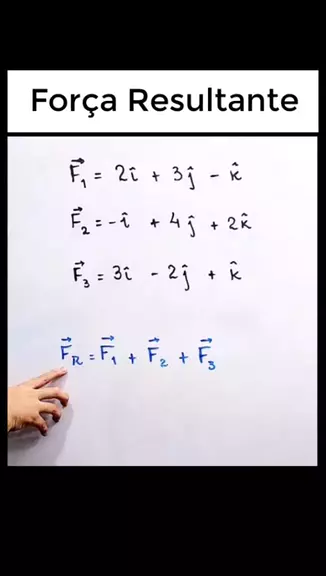 Força Resultante
F⃗₁ = 2î + 3ĵ - k̂
F⃗₂ = -î + 4ĵ + 2k̂
F⃗₃ = 3î - 2ĵ + k̂
F⃗R = F⃗₁ + F⃗₂ + F⃗₃